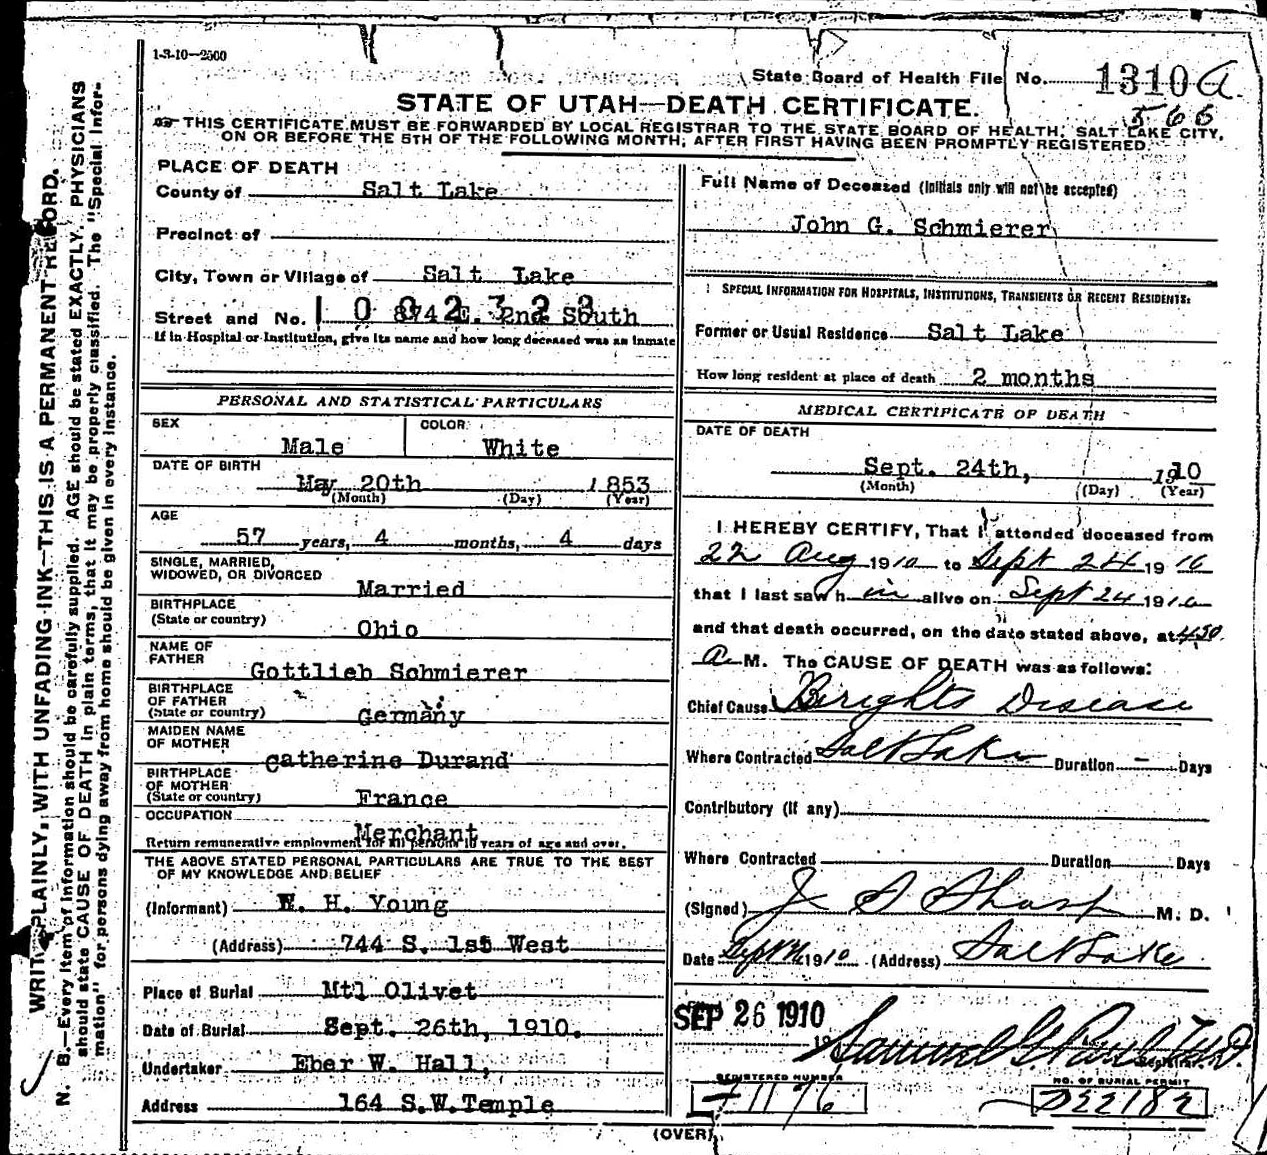 1-3-10—2500
State Board of Health File No. 1310 a
566
STATE OF UTAH—DEATH CERTIFICATE.
THIS CERTIFICATE MUST BE FORWARDED BY LOCAL REGISTRAR TO THE STATE BOARD OF HEALTH, SALT LAKE CITY,
ON OR BEFORE THE 5TH OF THE FOLLOWING MONTH, AFTER FIRST HAVING BEEN PROMPTLY REGISTERED.
WRITE PLAINLY, WITH UNFADING INK—THIS IS A PERMANENT RECORD.
N. B.—Every item of information should be carefully supplied. AGE should be stated EXACTLY. PHYSICIANS
should state CAUSE OF DEATH in plain terms, that it may be properly classified. The "Special Infor-
mation" for persons dying away from home should be given in every instance.
PLACE OF DEATH
County of Salt Lake
Precinct of
City, Town or Village of Salt Lake
Street and No. 874 E. 2nd South
1002323
If in Hospital or Institution, give its name and how long deceased was an inmate
PERSONAL AND STATISTICAL PARTICULARS
SEX Male
COLOR White
DATE OF BIRTH
May 20th 1853
(Month) (Day) (Year)
AGE
57 years, 4 months, 4 days
SINGLE, MARRIED,
WIDOWED, OR DIVORCED Married
BIRTHPLACE
(State or country) Ohio
NAME OF
FATHER Gottlieb Schmierer
BIRTHPLACE
OF FATHER
(State or country) Germany
MAIDEN NAME
OF MOTHER Catherine Durand
BIRTHPLACE
OF MOTHER
(State or country) France
OCCUPATION Merchant
Return remunerative employment for all persons 10 years of age and over.
THE ABOVE STATED PERSONAL PARTICULARS ARE TRUE TO THE BEST
OF MY KNOWLEDGE AND BELIEF
(Informant) H. Young
(Address) 744 S. 1st West
Place of Burial Mt. Olivet
Date of Burial Sept. 26th, 1910.
Undertaker Eber W. Hall,
Address 164 S.W.Temple
Full Name of Deceased (Initials only will not be accepted)
John G. Schmierer
SPECIAL INFORMATION FOR HOSPITALS, INSTITUTIONS, TRANSIENTS OR RECENT RESIDENTS:
Former or Usual Residence Salt Lake
How long resident at place of death 2 months
MEDICAL CERTIFICATE OF DEATH
DATE OF DEATH
Sept. 24th, 1910
(Month) (Day) (Year)
I HEREBY CERTIFY, That I attended deceased from
22 Aug 1910 to Sept 24 1910
that I last saw him alive on Sept 24 1910
and that death occurred, on the date stated above, at 4:50
A M. The CAUSE OF DEATH was as follows:
Chief Cause Brights Disease
Where Contracted Salt Lake Duration — Days
Contributory (if any)
Where Contracted Duration Days
(Signed) J S Sharp M. D.
Date Sept 1910 (Address) Salt Lake
SEP 26 1910
Samuel G. Paul M.D.
Registrar.
REGISTERED NUMBER
1176
NO. OF BURIAL PERMIT
D22182
(OVER)